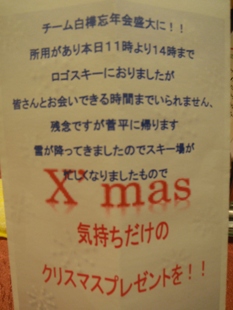 チーム白樺忘年会盛大に！！
所用があり本日11時より14時まで
ロゴスキーにおりましたが
皆さんとお会いできる時間までいられません、
残念ですが菅平に帰ります
雪が降ってきましたのでスキー場が
忙しくなりましたもので
X'mas
気持ちだけの
クリスマスプレゼントを！！